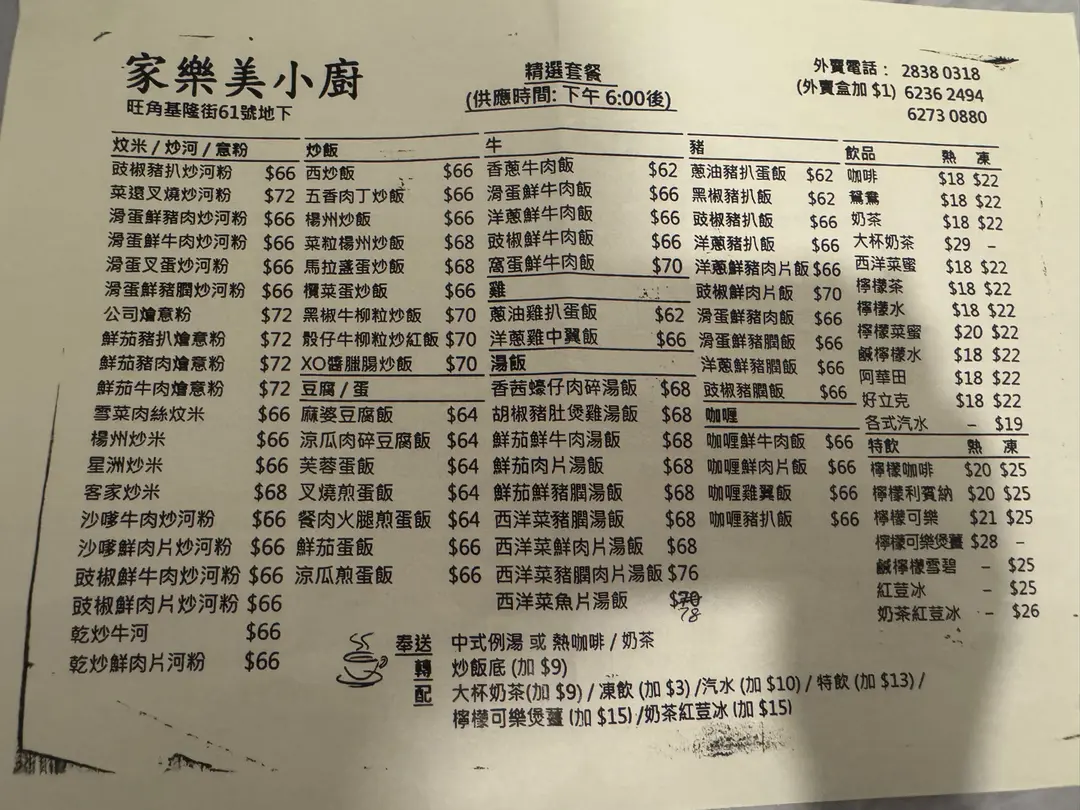 家樂美小廚
旺角基隆街61號地下
精選套餐
(供應時間: 下午 6:00後)
外賣電話： 2838 0318
(外賣盒加 $1) 6236 2494
6273 0880
炆米 / 炒河 / 意粉
豉椒豬扒炒河粉 $66
菜遠叉燒炒河粉 $72
滑蛋鮮豬肉炒河粉 $66
滑蛋鮮牛肉炒河粉 $66
滑蛋叉蛋炒河粉 $66
滑蛋鮮豬膶炒河粉 $66
公司燴意粉 $72
鮮茄豬扒燴意粉 $72
鮮茄豬肉燴意粉 $72
鮮茄牛肉燴意粉 $72
雪菜肉絲炆米 $66
楊州炒米 $66
星洲炒米 $66
客家炒米 $68
沙嗲牛肉炒河粉 $66
沙嗲鮮肉片炒河粉 $66
豉椒鮮牛肉炒河粉 $66
豉椒鮮肉片炒河粉 $66
乾炒牛河 $66
乾炒鮮肉片河粉 $66
炒飯
西炒飯 $66
五香肉丁炒飯 $66
楊州炒飯 $66
菜粒楊州炒飯 $68
馬拉盞蛋炒飯 $68
欖菜蛋炒飯 $66
黑椒牛柳粒炒飯 $70
骰仔牛柳粒炒紅飯 $70
XO醬臘腸炒飯 $70
豆腐 / 蛋
麻婆豆腐飯 $64
涼瓜肉碎豆腐飯 $64
芙蓉蛋飯 $64
叉燒煎蛋飯 $64
餐肉火腿煎蛋飯 $64
鮮茄蛋飯 $66
涼瓜煎蛋飯 $66
牛
香蔥牛肉飯 $62
滑蛋鮮牛肉飯 $66
洋蔥鮮牛肉飯 $66
豉椒鮮牛肉飯 $66
窩蛋鮮牛肉飯 $70
雞
蔥油雞扒蛋飯 $62
洋蔥雞中翼飯 $66
湯飯
香茜蠔仔肉碎湯飯 $68
胡椒豬肚煲雞湯飯 $68
鮮茄鮮牛肉湯飯 $68
鮮茄肉片湯飯 $68
鮮茄鮮豬膶湯飯 $68
西洋菜豬膶湯飯 $68
西洋菜鮮肉片湯飯 $68
西洋菜豬膶肉片湯飯 $76
西洋菜魚片湯飯 $70
78
豬
蔥油豬扒蛋飯 $62
黑椒豬扒飯 $62
豉椒豬扒飯 $66
洋蔥豬扒飯 $66
洋蔥鮮豬肉片飯 $66
豉椒鮮肉片飯 $70
滑蛋鮮豬肉飯 $66
滑蛋鮮豬膶飯 $66
洋蔥鮮豬膶飯 $66
豉椒豬膶飯 $66
咖喱
咖喱鮮牛肉飯 $66
咖喱鮮肉片飯 $66
咖喱雞翼飯 $66
咖喱豬扒飯 $66
飲品 熱 凍
咖啡 $18 $22
鴛鴦 $18 $22
奶茶 $18 $22
大杯奶茶 $29 –
西洋菜蜜 $18 $22
檸檬茶 $18 $22
檸檬水 $18 $22
檸檬菜蜜 $20 $22
鹹檸檬水 $18 $22
阿華田 $18 $22
好立克 $18 $22
各式汽水 – $19
特飲 熱 凍
檸檬咖啡 $20 $25
檸檬利賓納 $20 $25
檸檬可樂 $21 $25
檸檬可樂煲薑 $28 –
鹹檸檬雪碧 – $25
紅荳冰 – $25
奶茶紅荳冰 – $26
奉送 中式例湯 或 熱咖啡 / 奶茶
轉 炒飯底 (加 $9)
配 大杯奶茶(加 $9) / 凍飲 (加 $3) /汽水 (加 $10) / 特飲 (加 $13) /
檸檬可樂煲薑 (加 $15) /奶茶紅荳冰 (加 $15)